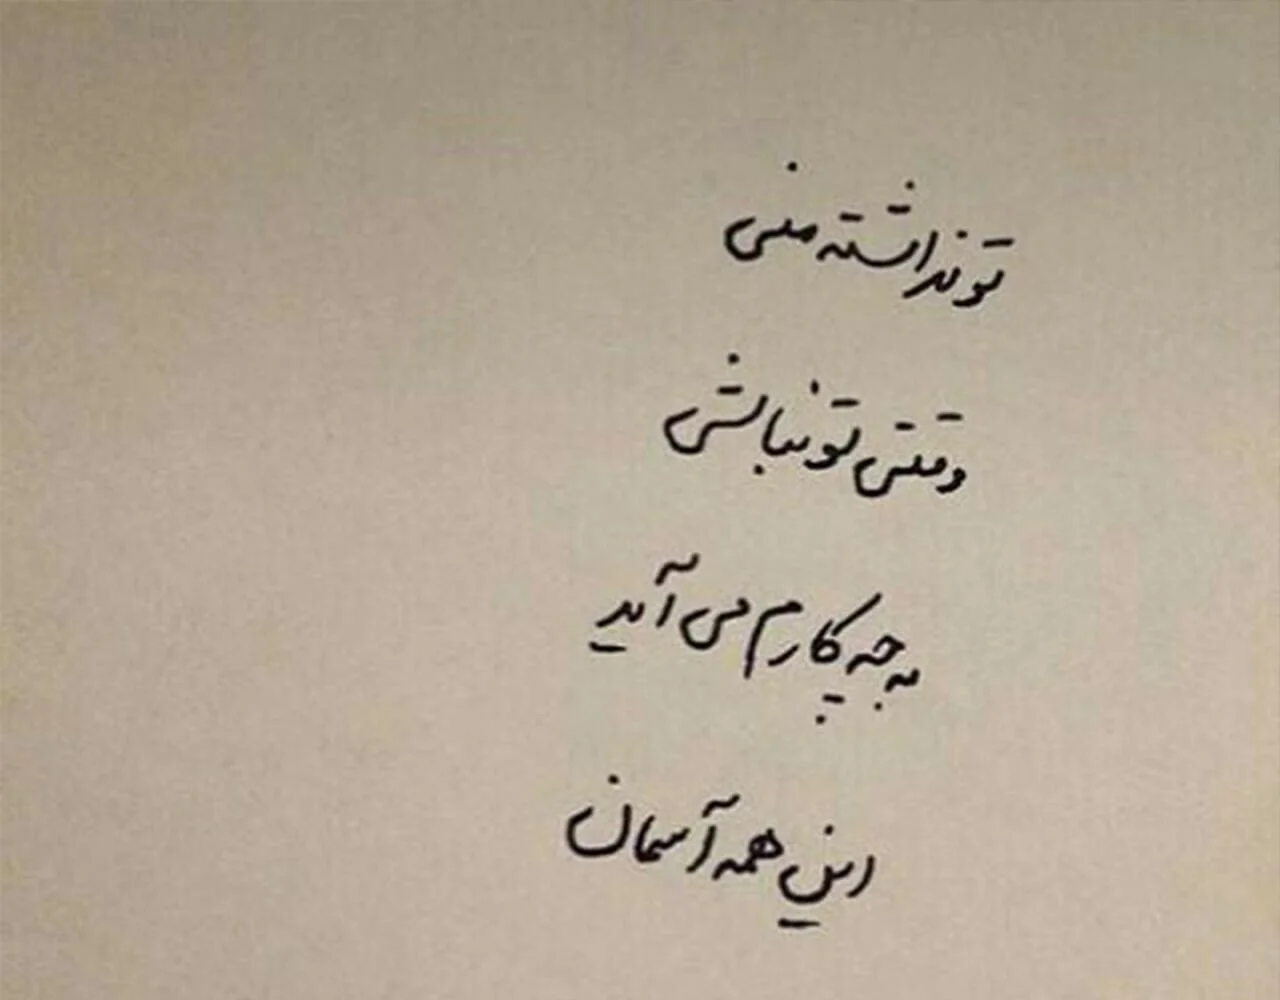 تو نداشته منی
وقتی تو نباشی
به چه کارم می آید
این همه آسمان